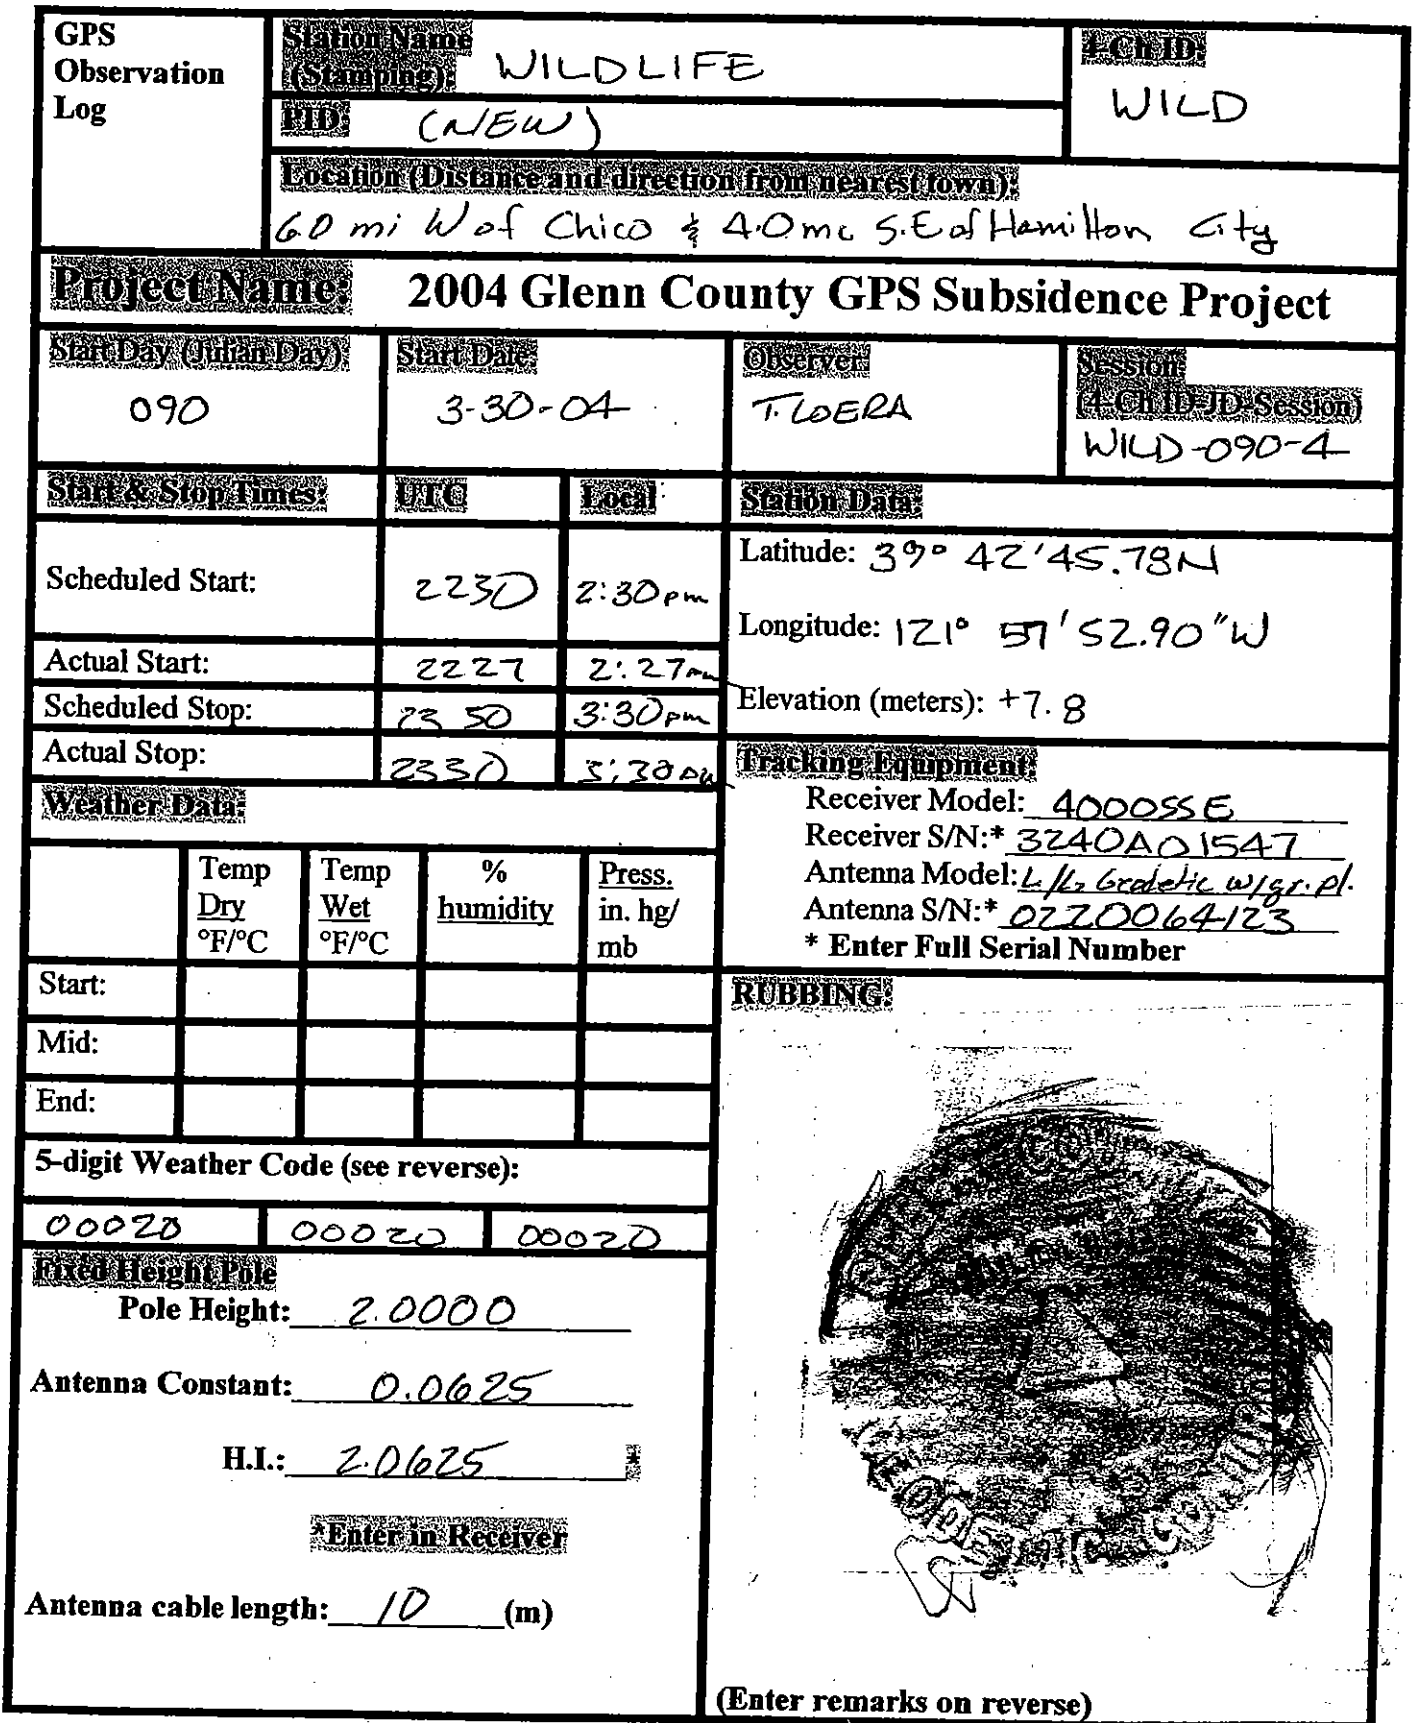 GPS
Observation
Log
Station Name
(Stamping): WILDLIFE
4-Ch ID:
WILD
PID: (NEW)
Location (Distance and direction from nearest town):
6.0 mi W of Chico & 4.0 mi S.E of Hamilton City
Project Name: 2004 Glenn County GPS Subsidence Project
Start Day (Julian Day)
090
Start Date:
3-30-04
Observer:
T. LOERA
Session:
(4-Ch ID-JD-Session)
WILD-090-4
Start & Stop Times: UTC Local
Scheduled Start: 2230 2:30pm
Actual Start: 2227 2:27pm
Scheduled Stop: 23 50 3:30pm
Actual Stop: 2330 3:30pm
Station Data:
Latitude: 39° 42'45.78N
Longitude: 121° 57'52.90"W
Elevation (meters): +7.8
Tracking Equipment:
Receiver Model: 4000SSE
Receiver S/N:* 3240A01547
Antenna Model: L1/L2 Geodetic w/gr.pl.
Antenna S/N:* 0220064123
* Enter Full Serial Number
Weather Data:
Temp
Dry
°F/°C
Temp
Wet
°F/°C
%
humidity
Press.
in. hg/
mb
Start:
Mid:
End:
5-digit Weather Code (see reverse):
00020 00020 00020
Fixed Height Pole
Pole Height: 2.0000
Antenna Constant: 0.0625
H.I.: 2.0625 *
*Enter in Receiver
Antenna cable length: 10 (m)
RUBBING:
(Enter remarks on reverse)